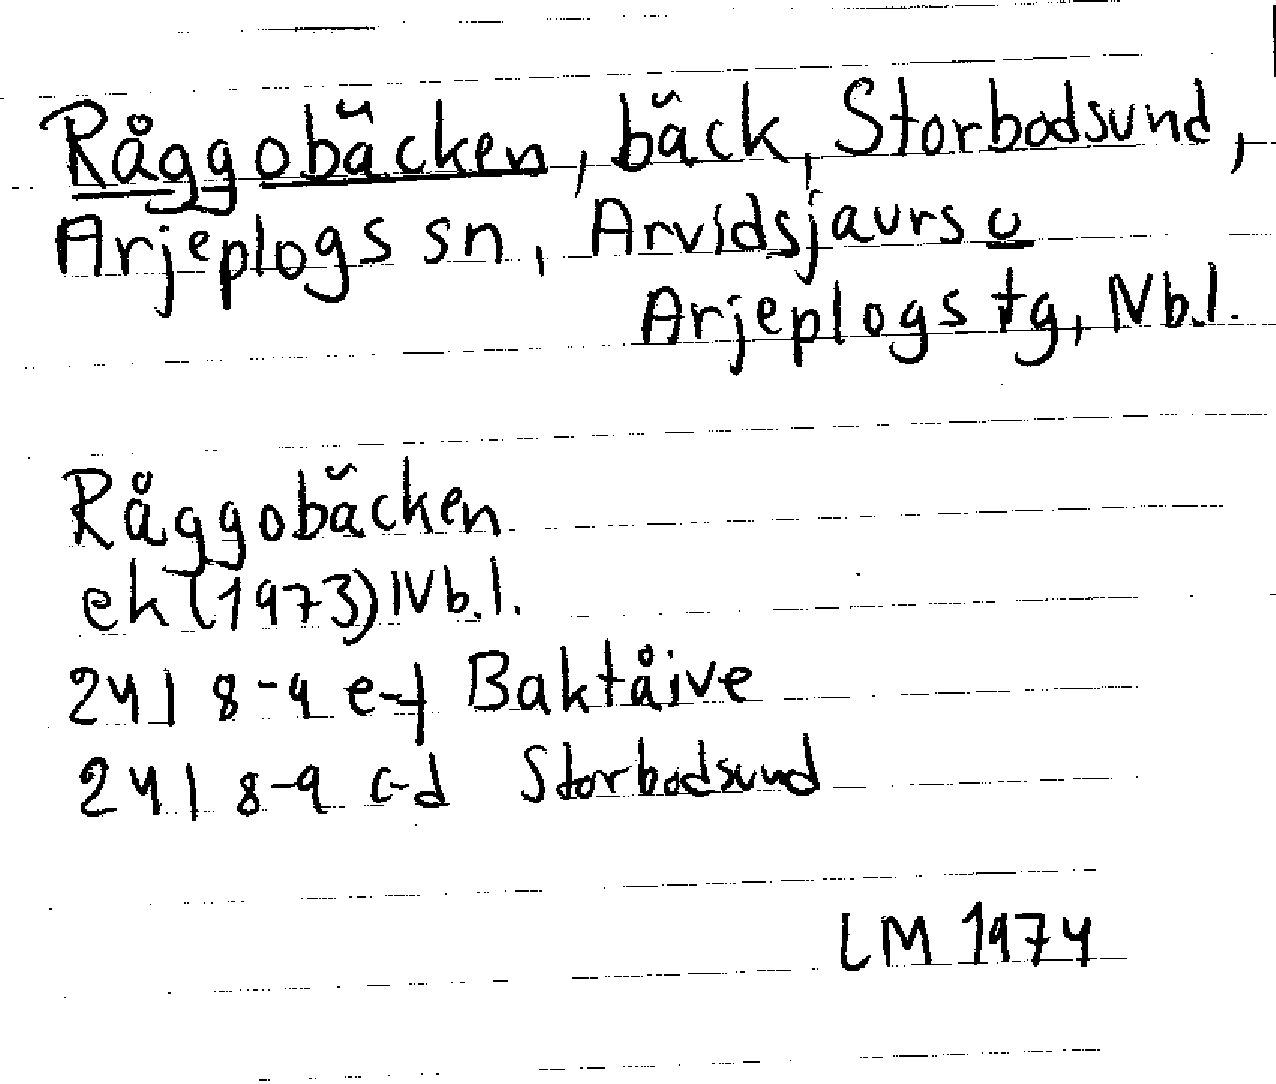 Råggobäcken, bäck, Storbodsund,
Arjeplogs sn, Arvidsjaurs o
Arjeplogs tg, Nb.l.
Råggobäcken
ek (1973) Nb.l.
24 I 8-9 e-f Baktåive
24 I 8-9 c-d Storbodsund
LM 1974